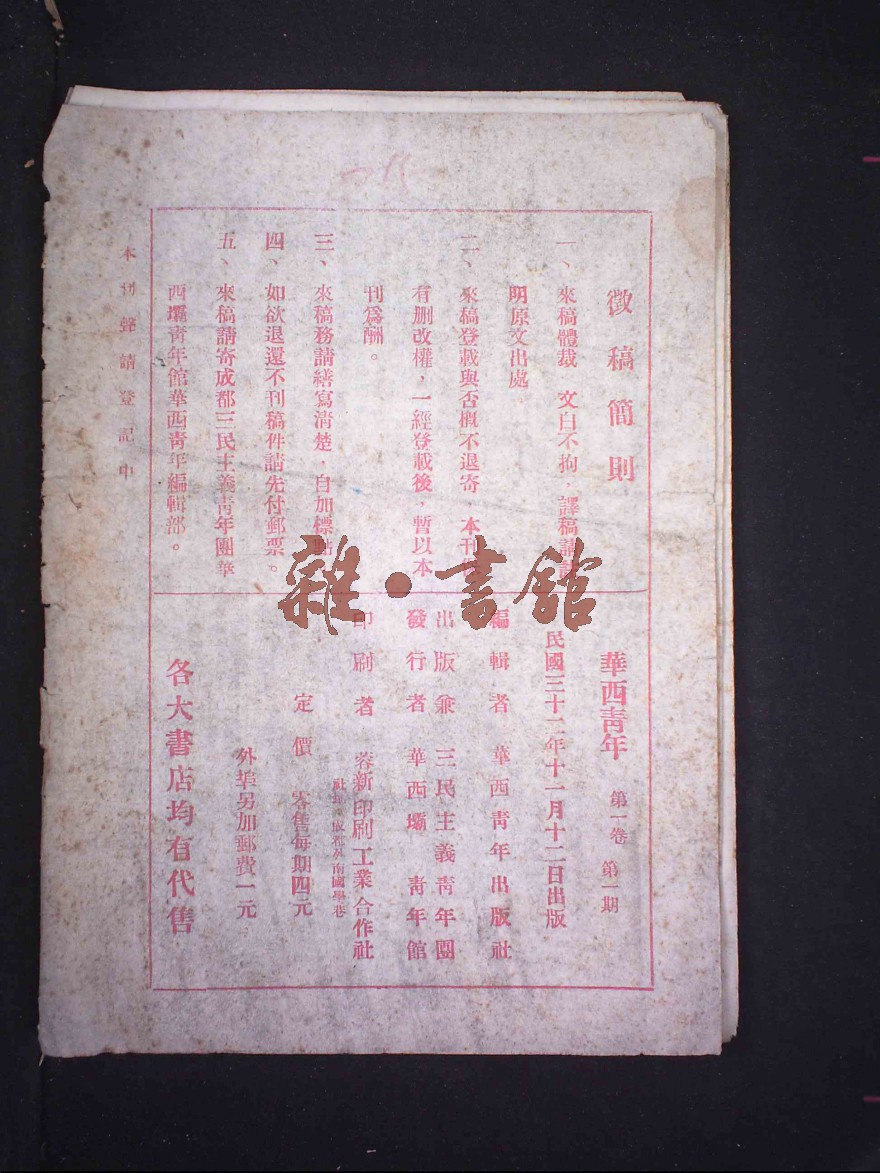 徵稿簡則
一、來稿體裁 文白不拘，譯稿請註
明原文出處
二、來稿登載與否概不退寄，本刊
有刪改權，一經登載後，暫以本
刊爲酬。
三、來稿務請繕寫清楚，自加標點
四、如欲退還不刊稿件請先付郵票。
五、來稿請寄成都三民主義青年團華
西壩青年館華西青年編輯部。
華西青年 第一卷 第一期
民國三十二年十一月十二日出版
編輯者 華西青年出版社
出版兼 三民主義青年團
發行者 華西壩 青年館
印刷者 蓉新印刷工業合作社
外南國學巷
定價 零售每期四元
外埠另加郵費一元
各大書店均有代售
本刊聲請登記中
雜·書館